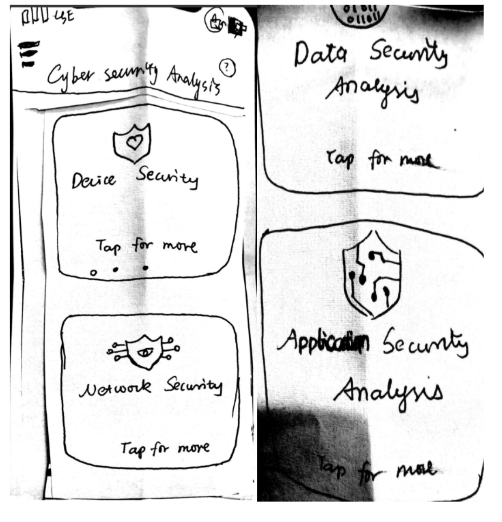 LTE
Cyber security Analysis ?
Device Security
Tap for more
Network Security
Tap for more
01011
011011
Data Security
Analysis
Tap for more
Application Security
Analysis
Tap for more